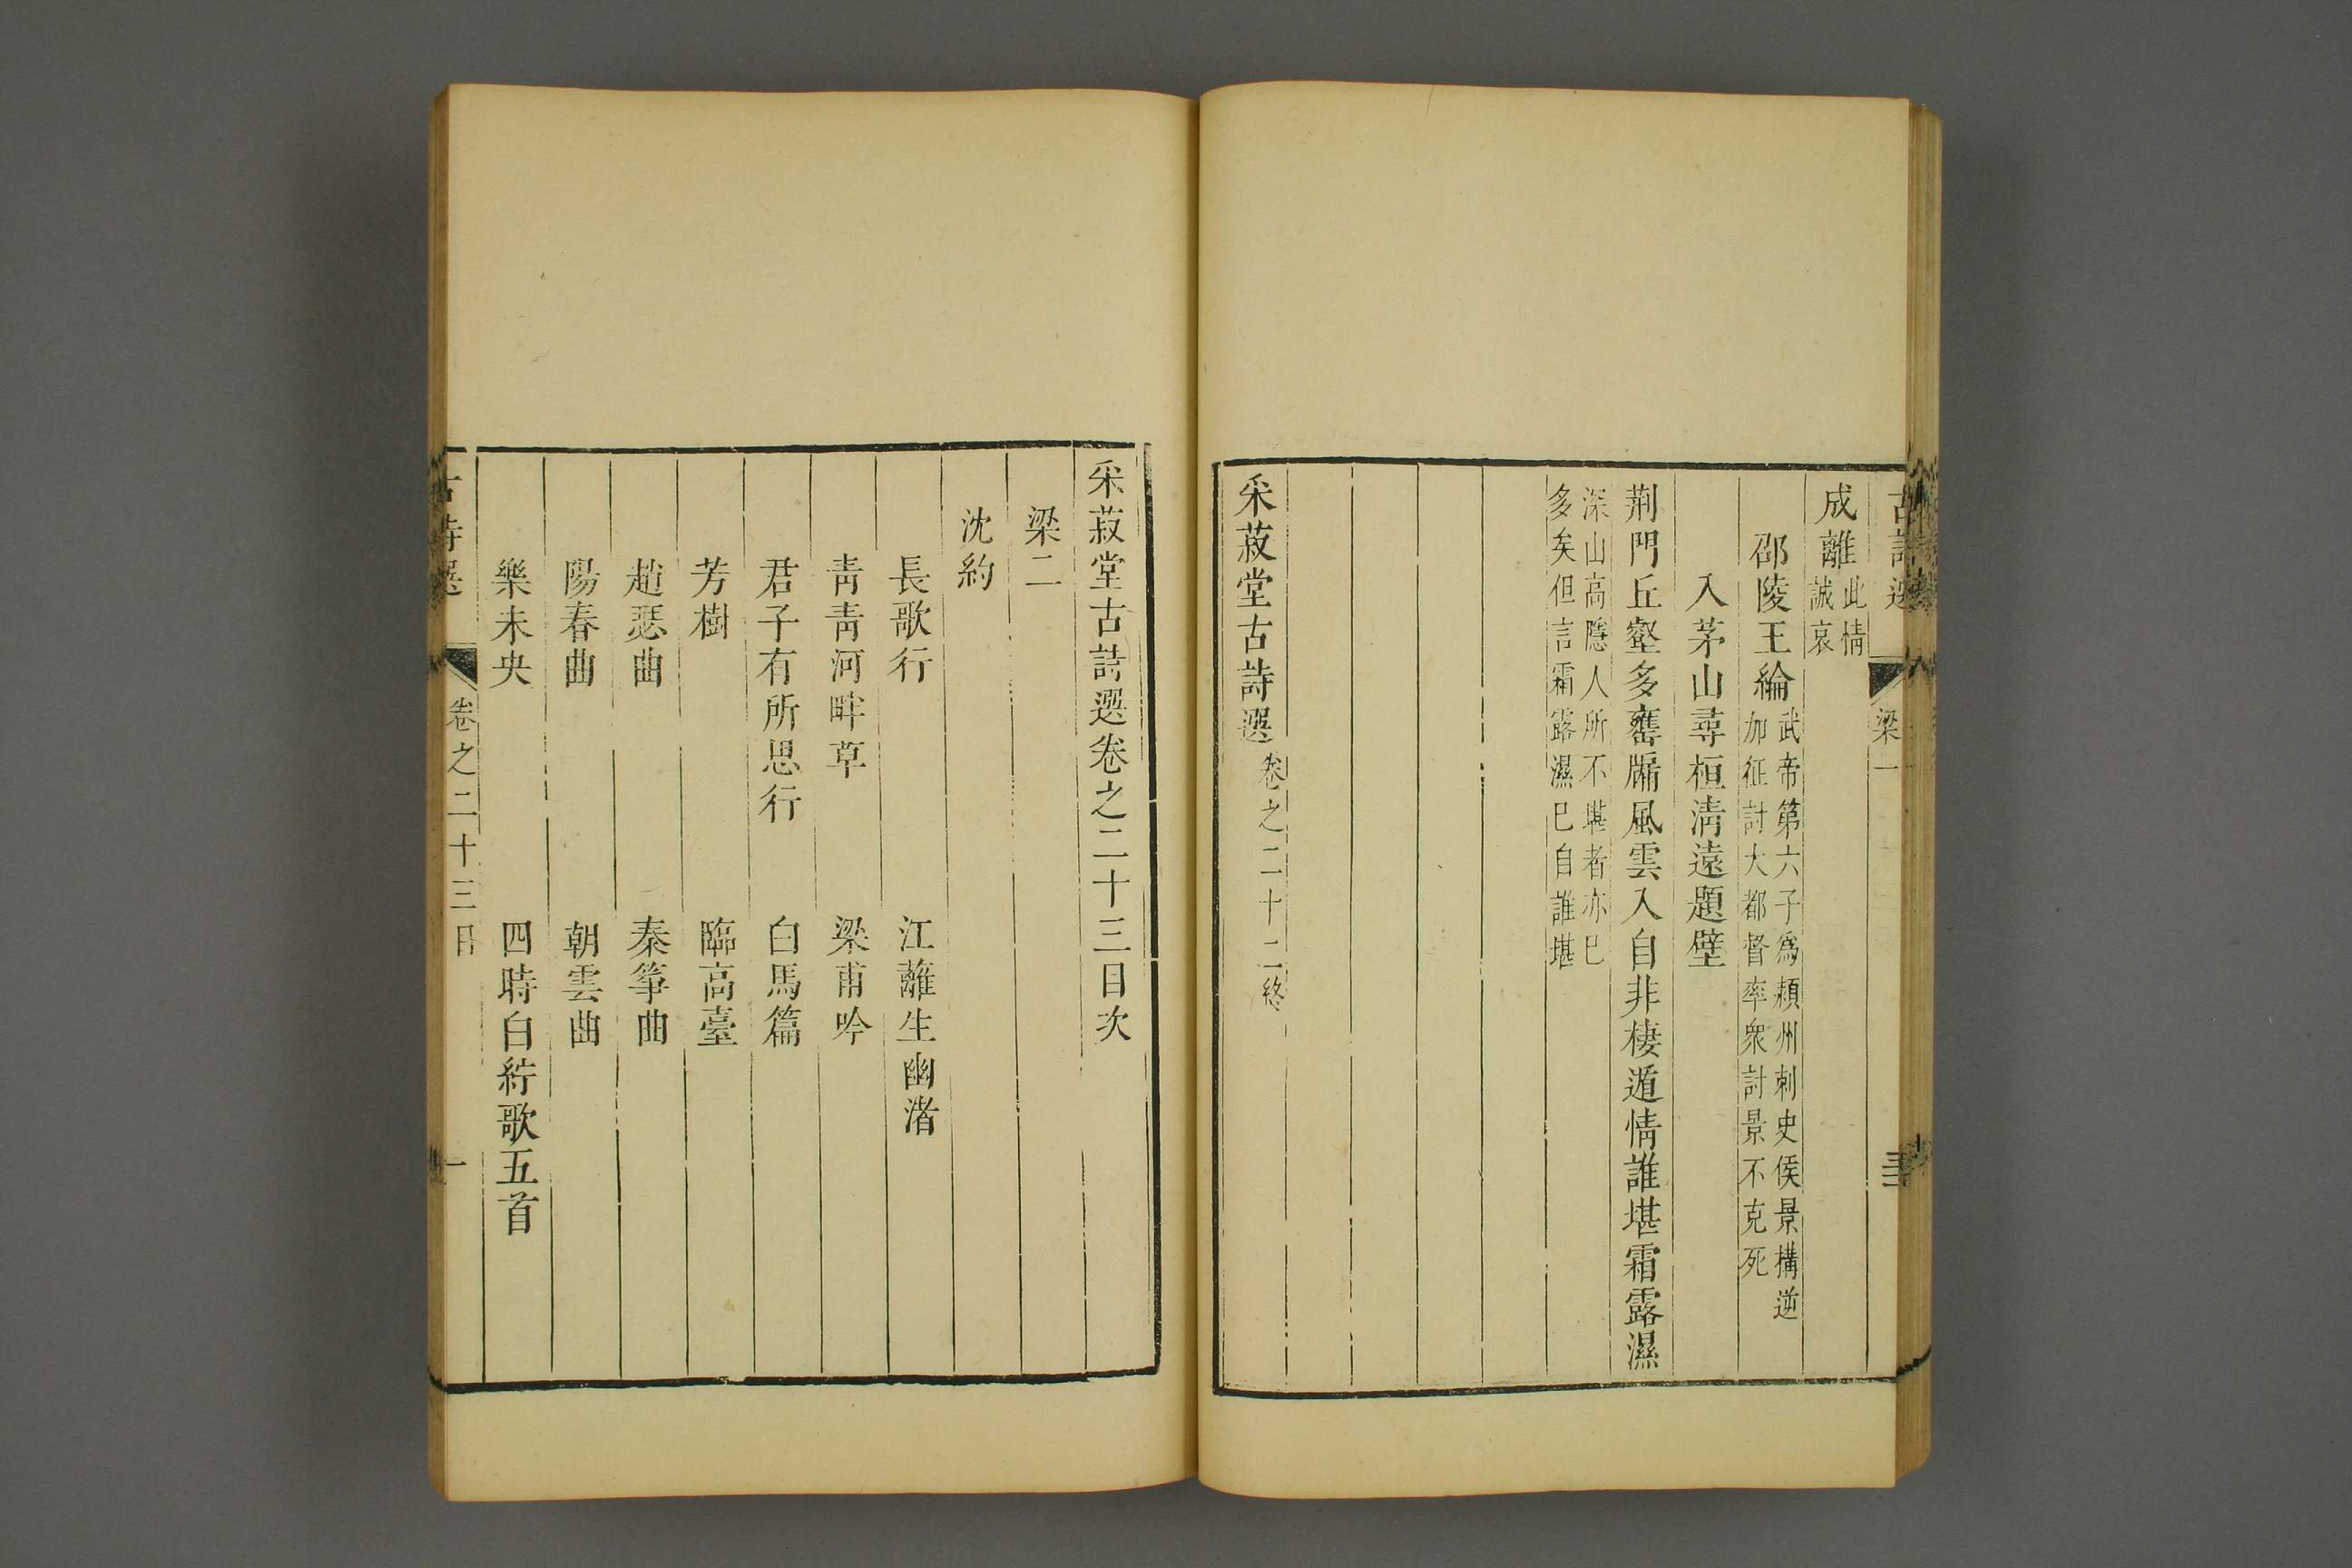 古詩選 梁一
成離此情
誠哀
邵陵王綸武帝第六子爲頴州刺史侯景構逆
加征討大都督率衆討景不克死
入茅山尋桓清遠題壁
荆門丘壑多甕牖風雲入自非棲遁情誰堪霜露濕
深山高隱人所不堪者亦已
多矣但言霜露濕已自誰堪
采菽堂古詩選卷之二十二終
采菽堂古詩選卷之二十三目次
梁二
沈約
長歌行 江蘺生幽渚
靑靑河畔草 梁甫吟
君子有所思行 白馬篇
芳樹 臨高臺
趙瑟曲 秦筝曲
陽春曲 朝雲曲
樂未央 四時白紵歌五首
古詩選 卷之二十三目 一